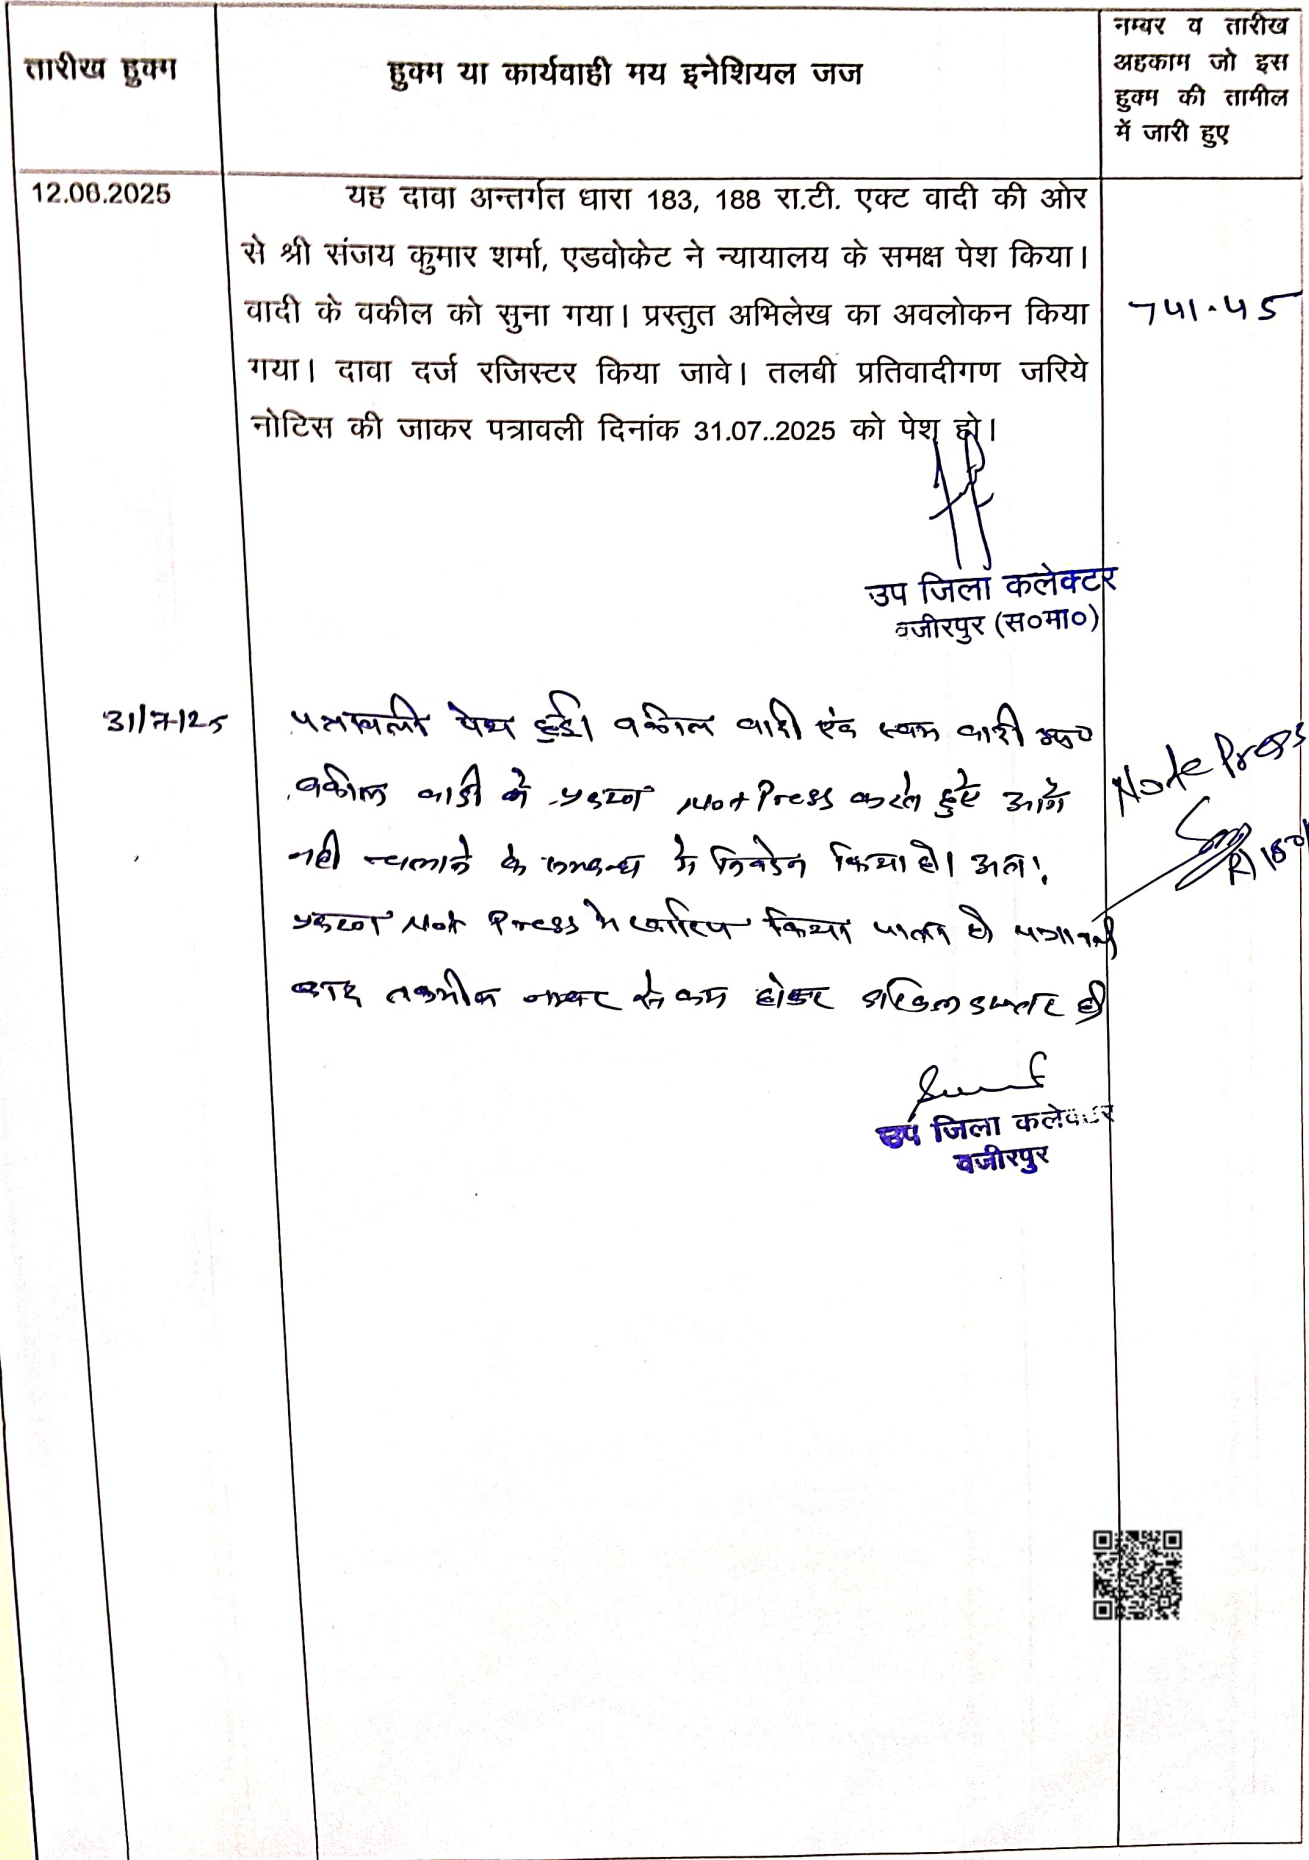 तारीख हुक्म
हुक्म या कार्यवाही मय इनेशियल जज
नम्बर व तारीख
अहकाम जो इस
हुक्म की तामील
में जारी हुए
12.06.2025
यह दावा अन्तर्गत धारा 183, 188 रा.टी. एक्ट वादी की ओर
से श्री संजय कुमार शर्मा, एडवोकेट ने न्यायालय के समक्ष पेश किया।
वादी के वकील को सुना गया। प्रस्तुत अभिलेख का अवलोकन किया
गया। दावा दर्ज रजिस्टर किया जावे। तलबी प्रतिवादीगण जरिये
नोटिस की जाकर पत्रावली दिनांक 31.07..2025 को पेश हो।
741-45
उप जिला कलेक्टर
वजीरपुर (स०मा०)
31/7/25
पत्रावली पेश हुई। वकील वादी एवं स्वयं वादी उप०
वकील वादी ने प्रकरण Not Press करते हुए आगे
नही चलाने के सम्बन्ध में निवेदन किया है। अतः
प्रकरण Not Press मे खारिज किया जाता है पत्रावली
बाद तकमील नम्बर से कम होकर दाखिल दफ्तर हो
Note Press
उप जिला कलेक्टर
वजीरपुर